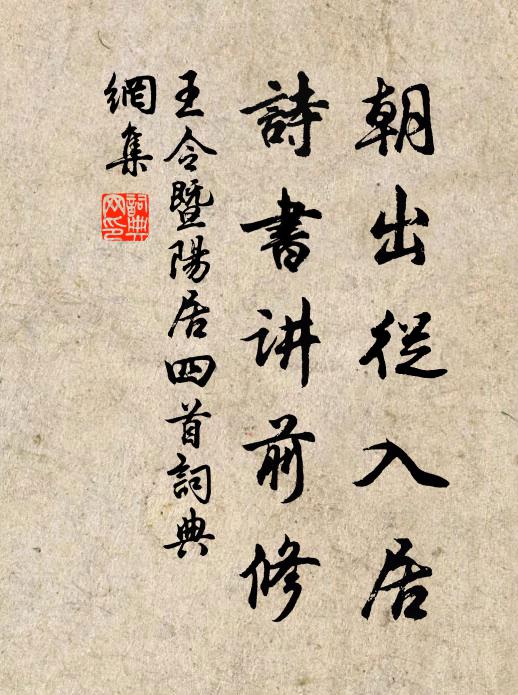 朝出從入居
詩書讲前修
王令暨陽居四首詞典
網集
詞典
网印